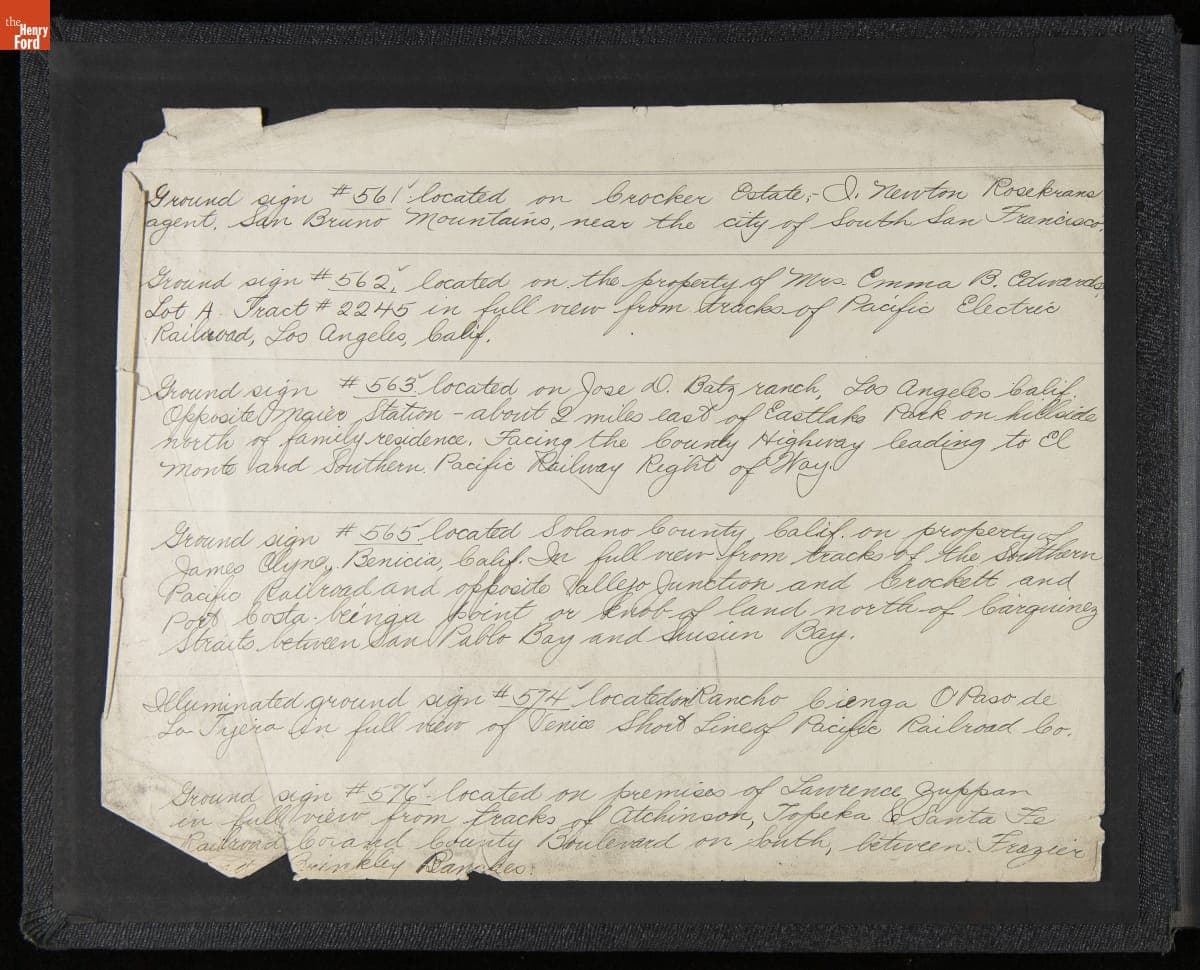 the Henry Ford
Ground sign #561 located on Crocker Estate,- J. Newton Rosekrans
agent. San Bruno Mountains, near the city of South San Francisco.
Ground sign #562, located on the property of Mrs. Emma B. Edwards,
Lot A. Tract #2245 in full view from tracks of Pacific Electric
Railroad, Los Angeles, Calif.
Ground sign #563 located on Jose D. Batz ranch, Los Angeles Calif.
Opposite Maier Station - about 2 miles east of Eastlake Park on hillside
north of family residence. Facing the County Highway leading to El
Monte and Southern Pacific Railway Right of Way.
Ground sign #565 located Solano County Calif. on property of
James Clyne, Benicia, Calif. In full view from tracks of the Southern
Pacific Railroad and opposite Vallejo Junction and Crockett and
Port Costa-being a point or knob of land north of Carquinez
Straits between San Pablo Bay and Suisun Bay.
Illuminated ground sign #574 located on Rancho Cienga O'Paso de
La Tijera in full view of Venice Short Line of Pacific Railroad Co.
Ground sign #576- located on premises of Lawrence Zuppan
in full view from tracks of Atchinson, Topeka & Santa Fe
Railroad Co and County Boulevard on South, between Frazier
Brinkley Ranches.